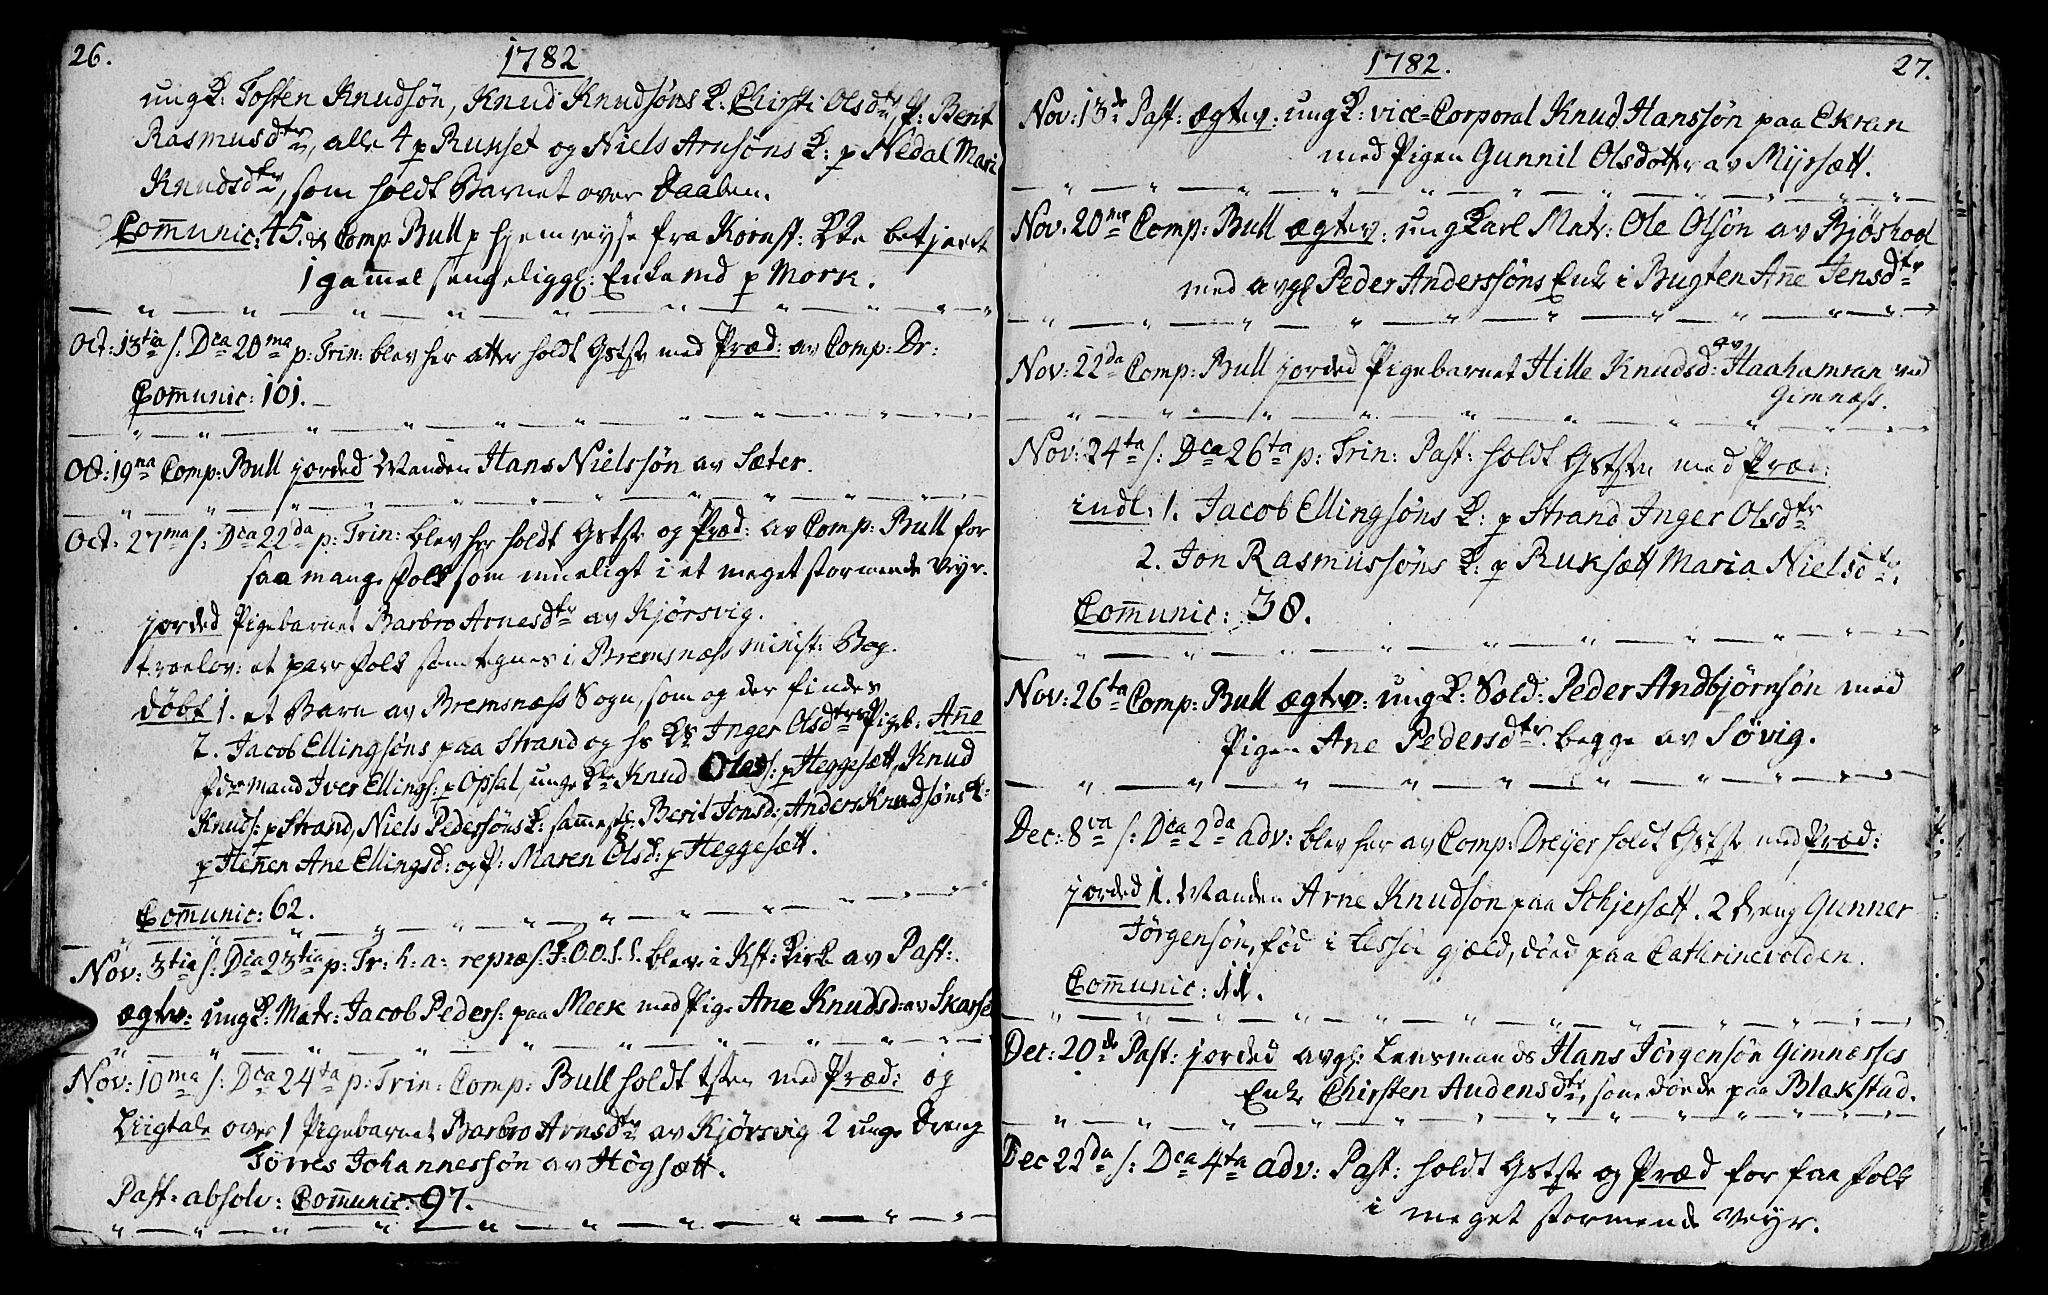 26.
1782
ung K: Tosten Knudsøn, Knud Knudsøns K: Chirsti Olsdtr, P: Berit
Rasmusdtr, alle 4 p Runset og Niels Arnsøns K: p Nedal Mari
Knudsdtr, som holdt Barnet over Daaben.
Com̄unic: 45. Comp Bull p hjemreyse fra Kornst: betjendt
1 gam̄el sengeligg: Enke p Mork.
Oct: 13tia s: Dca 20ma p: Trin: blev her atter holdt Gstste med Præd: av Comp: Dr:
Com̄unic: 101.
Oct: 19na Comp: Bull jorded Manden Hans Nielssøn av Sæter.
Oct: 27ma s: Dca 22da p: Trin: blev her holdt Gstste og Præd: av Comp: Bull for
saa mange folk som mueligt i et meget stormende Veyr.
jorded Pigebarnet Barbro Arnesdtr av Kjørsvig.
troelov: et parr folk som tegnes i Bremsnæss minist: Bog.
døbt 1. et Barn av Bremsnæss Sogn, som og der findes
2. Jacob Ellingsøns paa Strand og hs Ks Inger Olsdtrs Pigeb: An̄e
formand Iver Ellings: p Opsal, unge Kle Knud Oles: p Heggesætt, Knud
Knuds: p Strand, Niels Pedersøns K: sam̄este: Berit Jonsd: Anders Knudsøns K:
p Hen̄en Ane Ellingsd: og P: Maren Olsd: p Heggesætt.
Com̄unic: 62.
Nov: 3tia s: Dca 23tia p: Tr: h: a: repræs: F.O.O.S.S. blev i Kst: Kirk av Past:
ægtev: ung K: Matr: Jacob Peders: paa Meek med Pige Ane Knudsd: av Skarset
Nov: 10ma s: Dca 24ta p: Trin: Comp: Bull holdt tsten med Præd: og
Liigtale over 1 Pigebarnet Barbro Arnsdtr av Kjørsvig 2 unge Dreng
Torres Johannessøn av Høgsætt.
Past: absolv: Com̄unic: 97.
1782.
27.
Nov: 13de Past: ægtev: ung K: vice-Corporal Knud Hanssøn paa Ekran
med Pigen Gunnil Olsdotter av Myrsætt.
Nov. 20me Comp: Bull ægtev: ung Karl Matr: Ole Olsøn av Bjøshoel
med avg: Peder Anderssøns Enke i Bugten An̄e Jensdtr
Nov: 22da Comp: Bull jorded Pigebarnet Hille Knudsd: av Haahamran ved
Gimnæss.
Nov: 24ta s: Dca 26ta p: Trin: Past: holdt Gstste med Præd:
indl: 1. Jacob Ellingsøns K: p Strand Inger Olsdtr
2. Jon Rasmussøns K: p Ruksætt Maria Nielsdtr.
Com̄unic: 38.
Nov: 26ta Comp: Bull ægtev: ung K: Sold: Peder Andbjørnsøn med
Pigen Ane Pedersdtr begge av Søvig.
Dec: 8va s: Dca 2da adv: blev her av Comp: Dreyer holdt Gstste med Præd:
jorded 1. Manden Arne Knudsøn paa Schjersætt. 2 dreng Gunner
Jørgensøn, fød i Lessøe gjæld, død paa Cathrinevolden.
Com̄unic: 11.
Dec: 20de Past: jorded avg: Lensmands Hans Jørgensøn Gimnæsses
Enke Chirsten Audensdtr, som døde paa Blakstad.
Dec 22da s: Dca 4ta adv: Past: holdt Gstste og Præd for faa folk
i meget stormende Veyr.